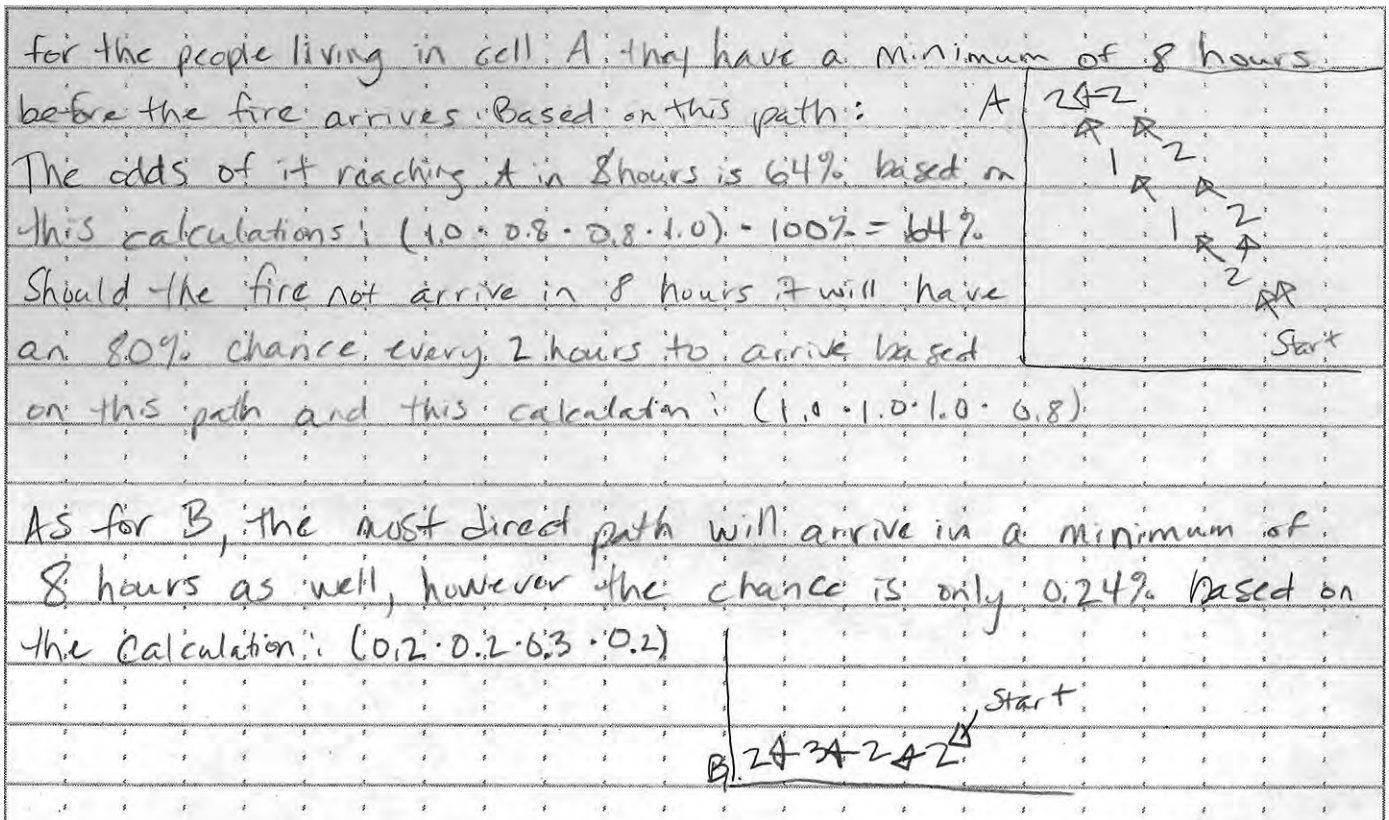 for the people living in cell A they have a minimum of 8 hours
before the fire arrives. Based on this path: A 2 2
The odds of it reaching A in 8 hours is 64% based on 1 2
this calculations: (1.0 · 0.8 · 0.8 · 1.0) · 100% = 64% 1 2
Should the fire not arrive in 8 hours it will have 2
an 80% chance every 2 hours to arrive based Start
on this path and this calculation: (1.0 · 1.0 · 1.0 · 0.8)
As for B, the most direct path will arrive in a minimum of
8 hours as well, however the chance is only 0.24% based on
the calculation: (0.2 · 0.2 · 0.3 · 0.2)
Start
B 2 3 2 2